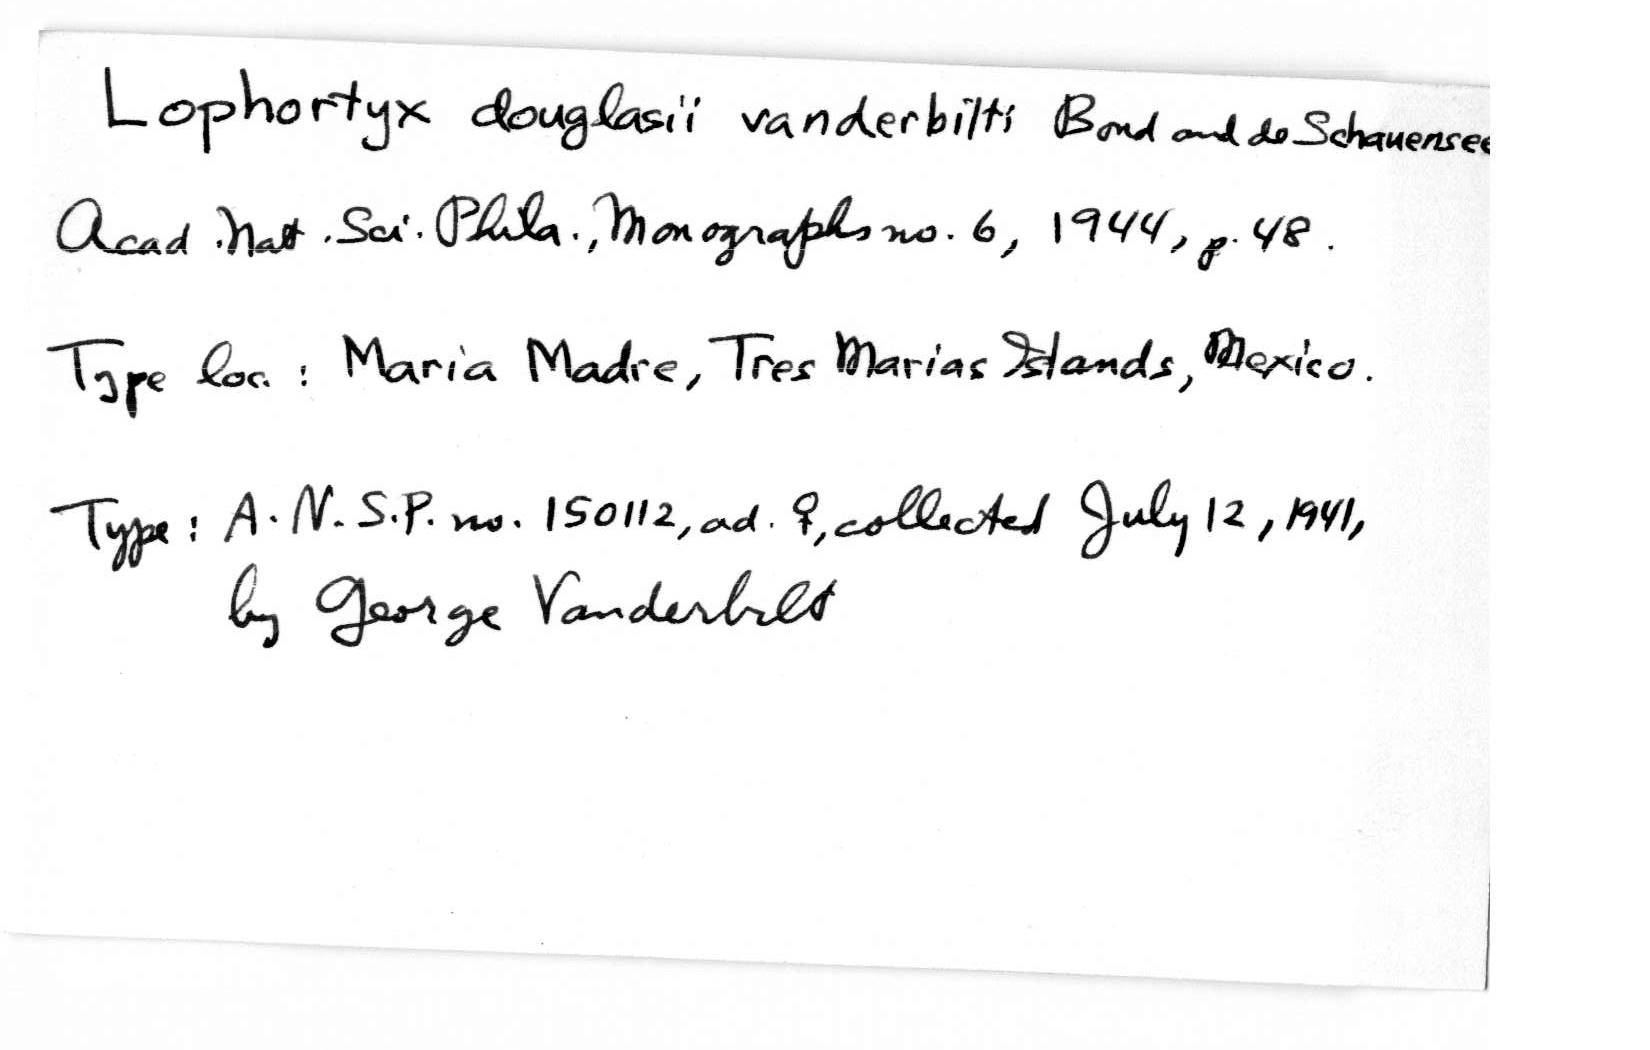 Lophortyx douglasii vanderbilti Bond and de Schauensee
Acad. Nat. Sci. Phila., Monographs no. 6, 1944, p. 48.
Type loc. : Maria Madre, Tres Marias Islands, Mexico.
Type : A. N. S. P. no. 150112, ad. ♀, collected July 12, 1941,
by George Vanderbilt